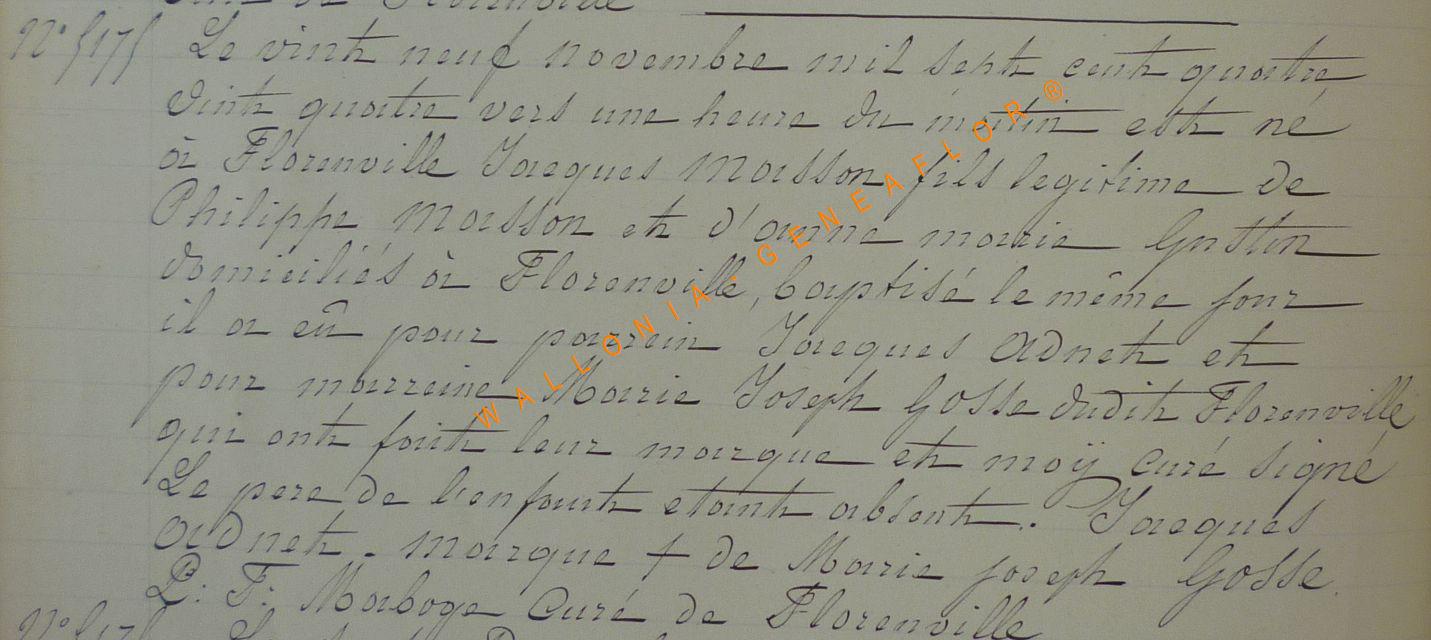 de Florenville
N° 5175 Le vint neuf novembre mil sept cent quatre
vint quatre vers une heure du matin est né
à Florenville Jacques Masson fils legitime de
Philippe Masson et d'anne marie Gustin
domiciliés à Florenville, baptisé le même jour
il a eû pour parrein Jacques Adnet et
pour marreine Marie Joseph Gosse dudit Florenville
qui ont fait leur marque et moÿ curé signé
Le pere de l'enfant etant absent. Jacques
Adnet. marque + de Marie joseph Gosse.
P: F: Maboge Curé de Florenville
WALLONIA - GENEAFLOR ®